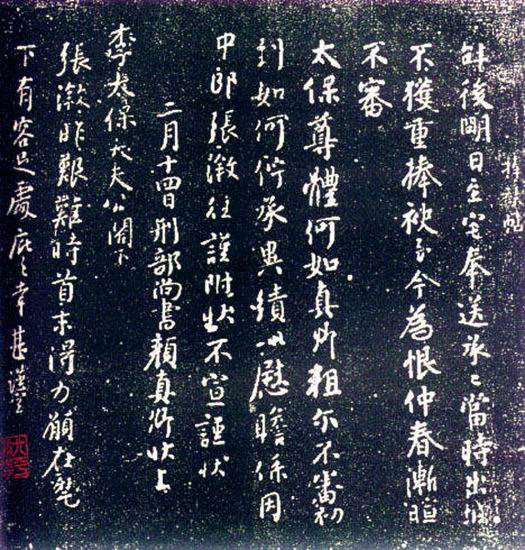 捧袂帖
辞後明日至宅奉送承已當時出城
不獲重捧袂至今為恨仲春漸暄
不審
太保尊體何如真卿粗尓不審初
到如何佇承異績以慰瞻係因
中郎張澂往謹附狀不宣謹狀
二月十四日刑部尚書顏真卿狀上
李太保大夫公閣下
張澂昨艱難時首末得力願在麾
下有容足處庇之幸甚謹空